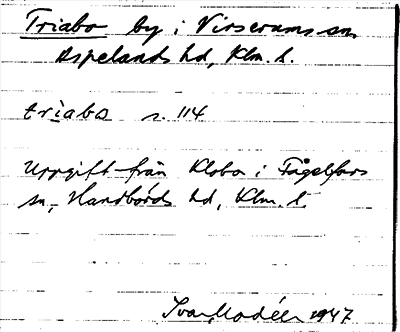 Triabo by i Virserums sn.
Aspelands hd, Klm. l.
triabo s. 114
Uppgift från Klobo i Fågelfors
sn, Handbörds hd, Klm. l.
Ivar Modéer 1947